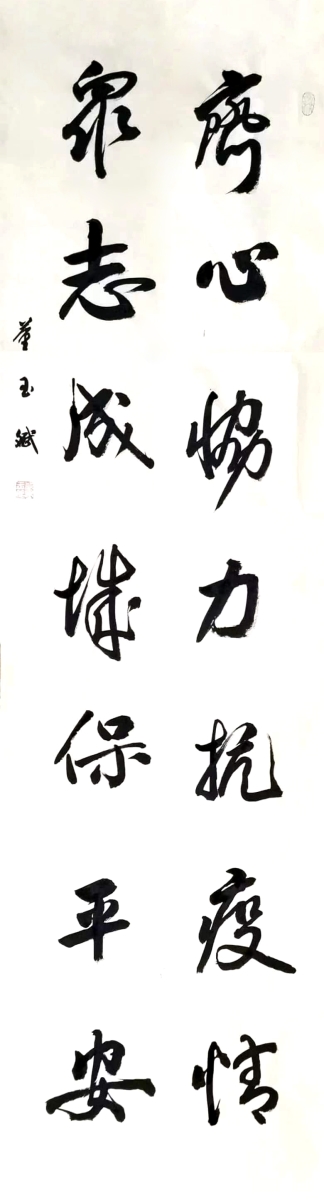 齊心協力抗疫情
衆志成城保平安
董玉斌